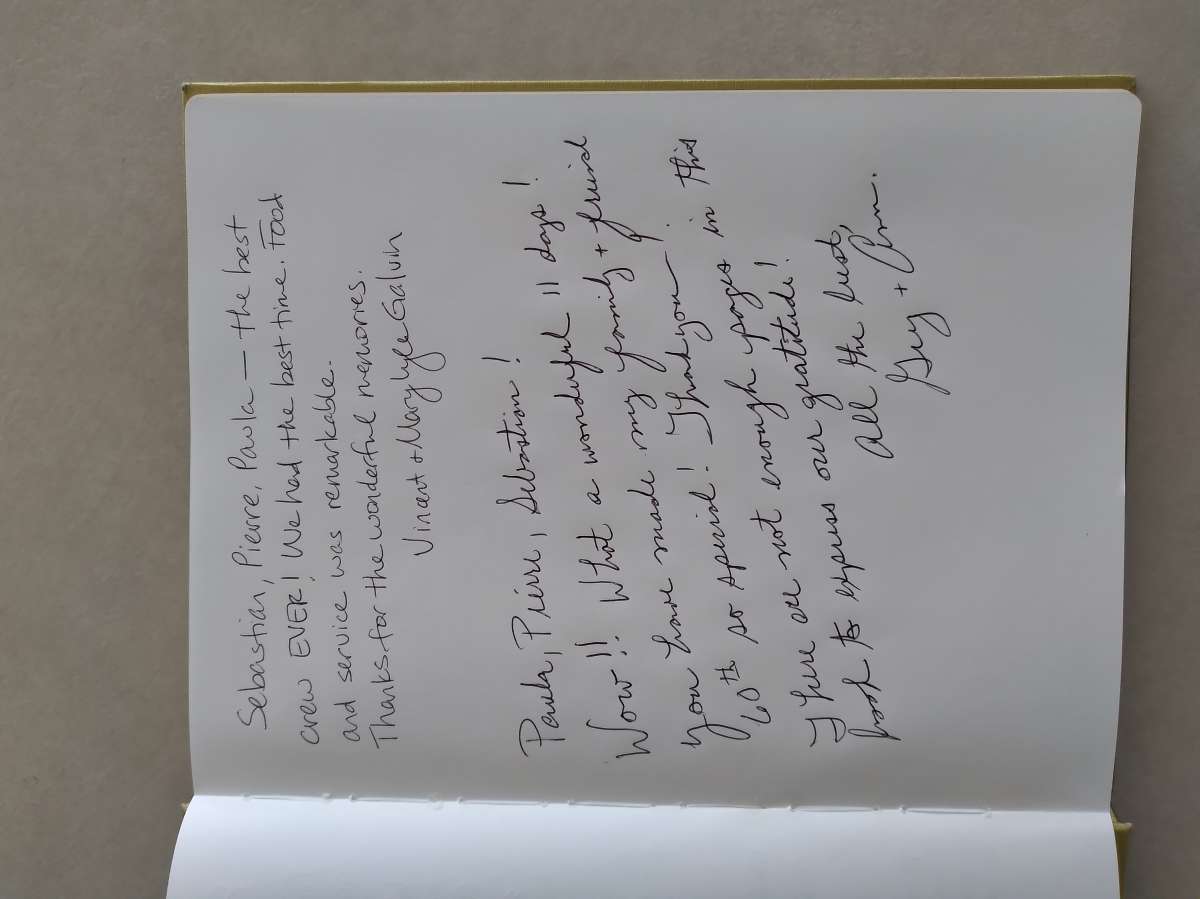 Sebastian, Pierre, Paula — the best
crew EVER! We had the best time. Food
and service was remarkable.
Thanks for the wonderful memories.
Vincent + Mary Lyee Galvin
Paula, Pierre, Sebastian!
Wow!! What a wonderful 11 days!
you have made my family + friend
60th so special! Thank you!
There are not enough pages in this
book to express our gratitude!
All the best,
+ Ann.